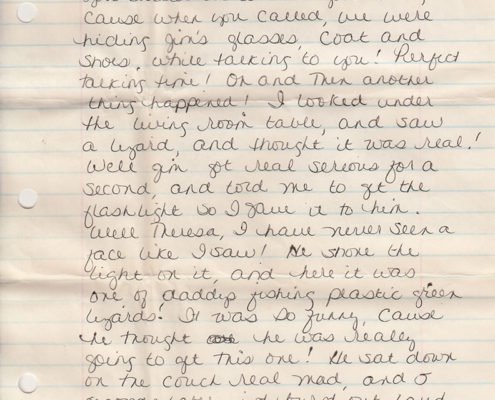 cause when you called, we were
hiding gin's glasses, coat and
shoes, while talking to you! Perfect
talking time! Oh and then another
thing happened! I looked under
the living room table, and saw
a lizard, and thought it was real!
Well gin got real serious for a
second, and told me to get the
flashlight so I gave it to him.
Well Theresa, I have never seen a
face like I saw! He shone the
light on it, and here it was
one of daddys fishing plastic green
lizards! It was so funny, cause
he thought he was really
going to get this one! He sat down
on the couch real mad, and 5